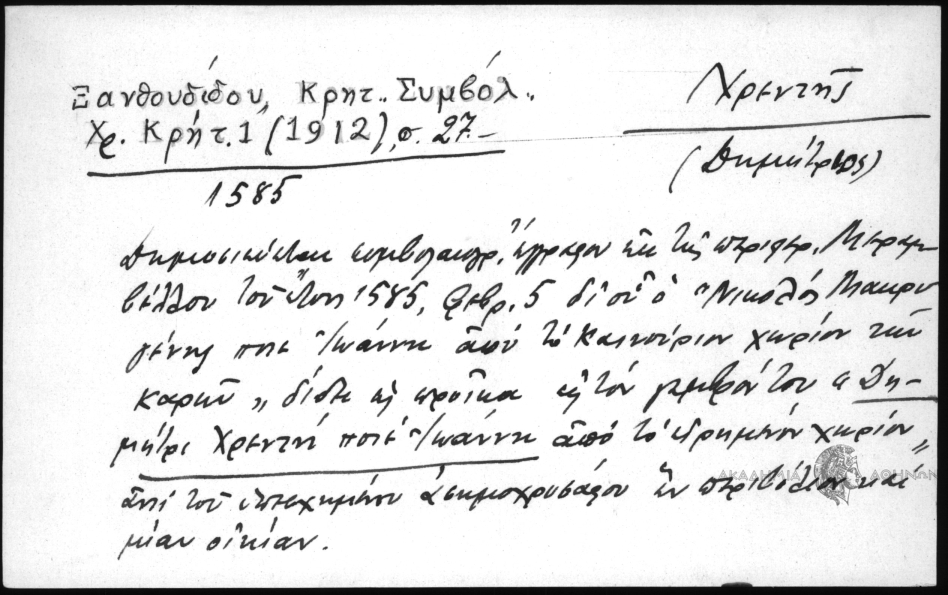 Ξανθουδίδου, Κρητ. Συμβόλ.
Χρ. Κρήτ. 1 (1912), σ. 27.–
Χρεντῆς
(Δημήτριος)
1585
Δημοσιεύεται συμβολαιογρ. ἔγγραφον ἐκ τῆς περιφερ. Μεραμ-
βέλλου τοῦ ἔτους 1585, Φεβρ. 5 δι' οὗ ὁ "Νικολός Μακρυ
γένης ποτέ Ἰωάννη ἀπό τό Καινούριον χωρίον τοῦ
καρεῦ" δίδει εἰς προῖκα εἰς τόν γαμβρόν του "Δη-
μήτρι Χρεντή ποτέ Ἰωάννη ἀπό τό εἰρημένον χωρίον"
ἀντί τοῦ ἀσημοχρυσάφου ἕν περιβόλιον καί
μίαν οἰκίαν.
ΑΚΑΔΗΜΙΑ ΑΘΗΝΩΝ